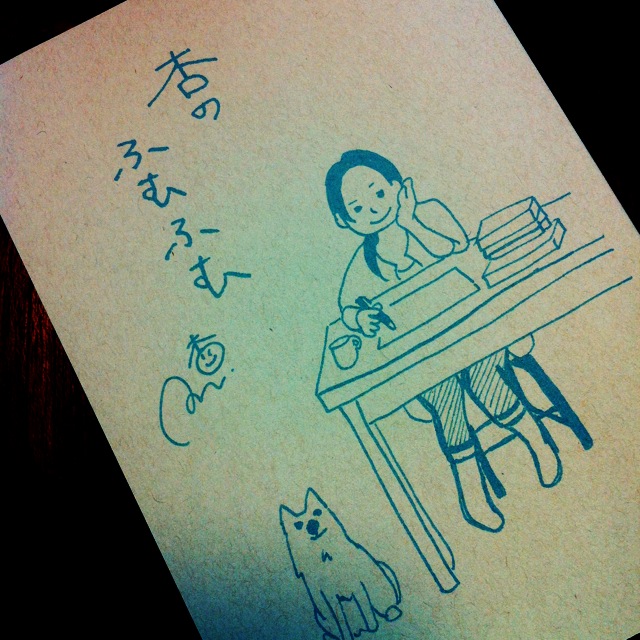 杏の
ふむふむ
杏